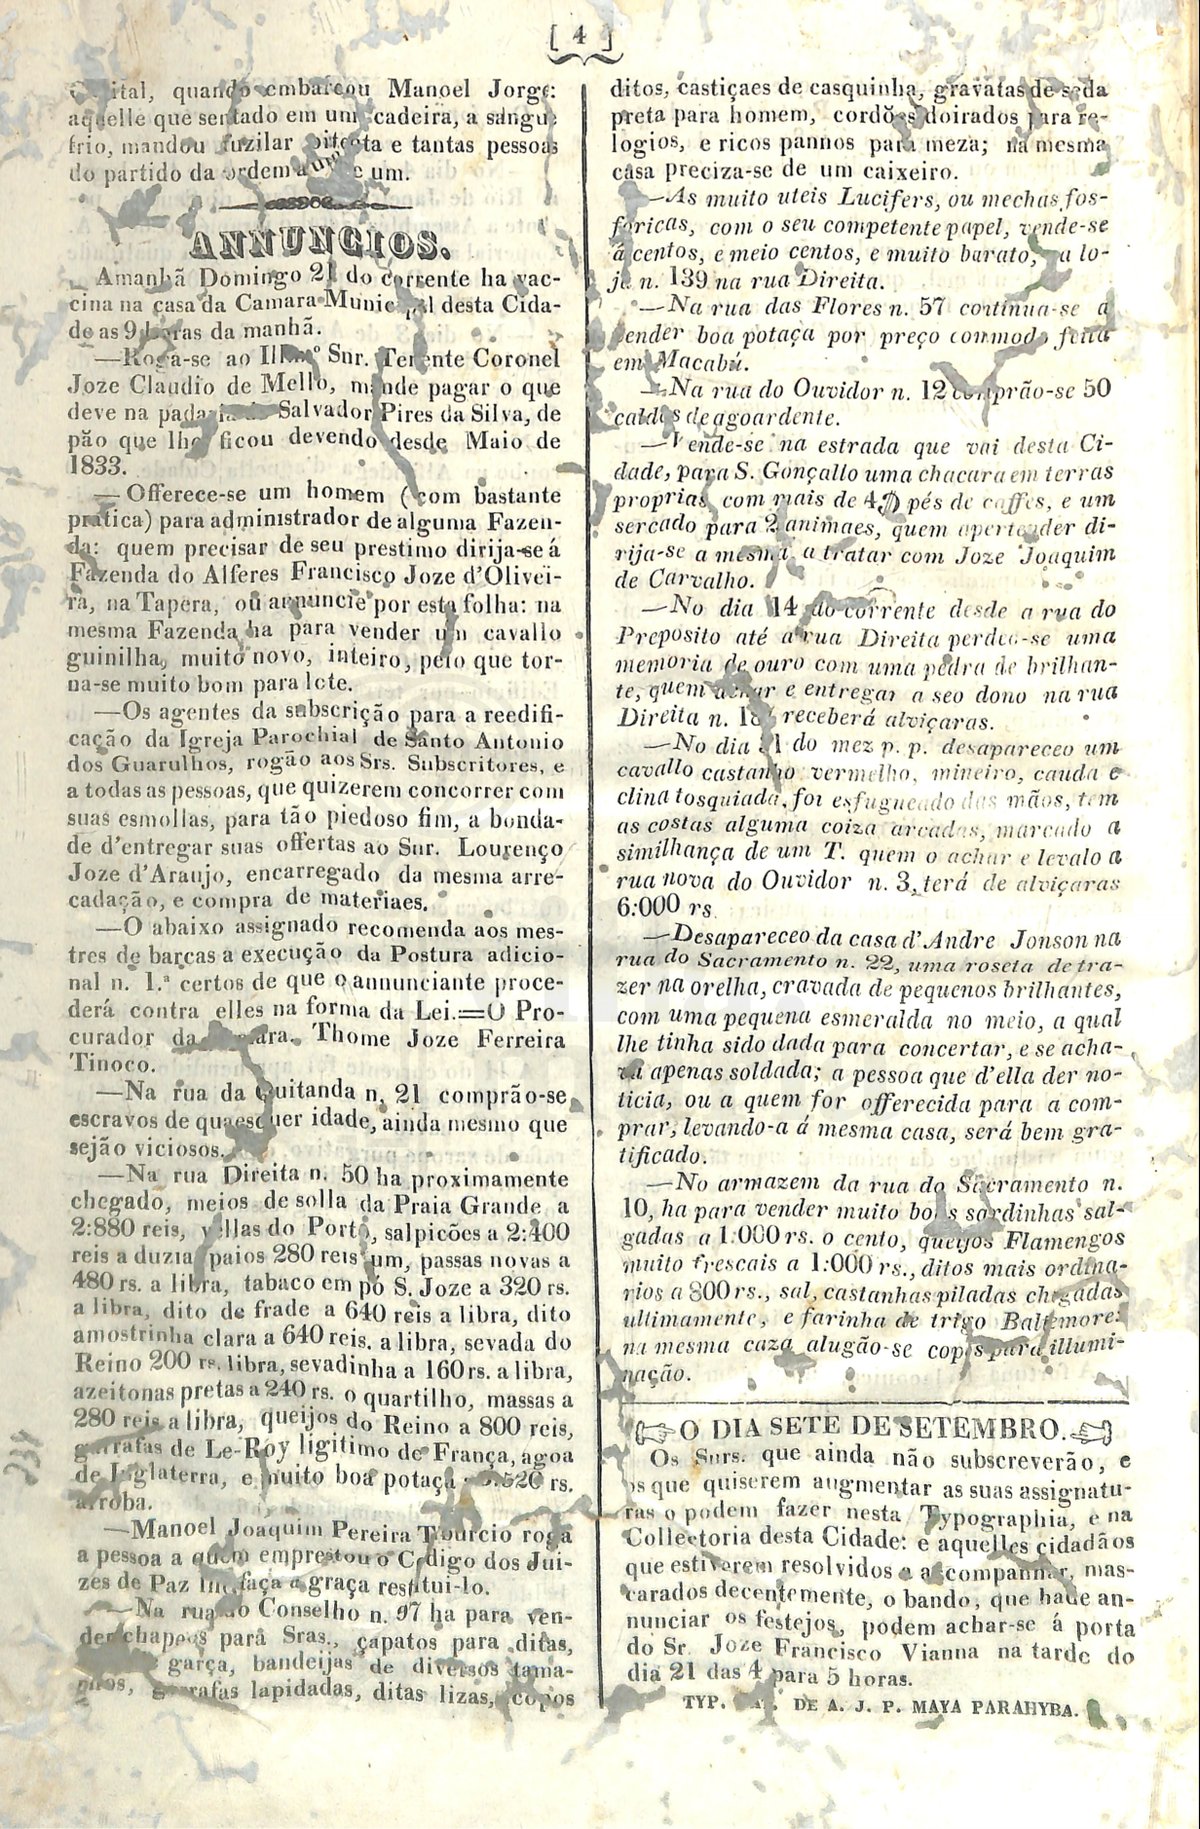 [ 4 ]
quando embarcou Manoel Jorge:
aquelle que sentado em uma cadeira, a sangue
frio, mandou fuzilar oitenta e tantas pessoas
do partido da ordem e um.
ANNUNCIOS.
Amanhã Domingo 21 do corrente ha vac-
cina na casa da Camara Municipal desta Cida-
de as 9 horas da manhã.
—Roga-se ao Illmº Snr. Tenente Coronel
Joze Claudio de Mello, mande pagar o que
deve na padaria de Salvador Pires da Silva, de
pão que lhe ficou devendo desde Maio de
1833.
— Offerece-se um homem (com bastante
pratica) para administrador de alguma Fazen-
da: quem precisar de seu prestimo dirija-se á
Fazenda do Alferes Francisco Joze d'Olivei-
ra, na Tapera, ou annuncie por esta folha: na
mesma Fazenda ha para vender um cavallo
guinilha, muito novo, inteiro, pelo que tor-
na-se muito bom para lote.
—Os agentes da subscrição para a reedifi-
cação da Igreja Parochial de Santo Antonio
dos Guarulhos, rogão aos Srs. Subscritores, e
a todas as pessoas, que quizerem concorrer com
suas esmollas, para tão piedoso fim, a bonda-
de d'entregar suas offertas ao Snr. Lourenço
Joze d'Araujo, encarregado da mesma arre-
cadação, e compra de materiaes.
—O abaixo assignado recomenda aos mes-
tres de barcas a execução da Postura adicio-
nal n. 1.ª certos de que o annunciante proce-
derá contra elles na forma da Lei.=O Pro-
curador da Camara. Thome Joze Ferreira
Tinoco.
—Na rua da Quitanda n. 21 comprão-se
escravos de quaesquer idade, ainda mesmo que
sejão viciosos.
—Na rua Direita n. 50 ha proximamente
chegado, meios de solla da Praia Grande a
2:880 reis, vellas do Porto, salpicões a 2:400
reis a duzia, paios 280 reis um, passas novas a
480 rs. a libra, tabaco em pó S. Joze a 320 rs.
a libra, dito de frade a 640 reis a libra, dito
amostrinha clara a 640 reis. a libra, sevada do
Reino 200 rs. libra, sevadinha a 160 rs. a libra,
azeitonas pretas a 240 rs. o quartilho, massas a
280 reis a libra, queijos do Reino a 800 reis,
garrafas de Le-Roy ligitimo de França, agoa
de Inglaterra, e muito boa potaça rs.
arroba.
—Manoel Joaquim Pereira Tiburcio roga
a pessoa a quem emprestou o Codigo dos Jui-
zes de Paz lhe faça a graça restitui-lo.
—Na rua do Conselho n. 97 ha para ven-
der chapeos para Sras., çapatos para ditas,
garça, bandeijas de diversos tama-
nhos, garrafas lapidadas, ditas lizas, copos
ditos, castiçaes de casquinha, gravatas de seda
preta para homem, cordões doirados para re-
logios, e ricos pannos para meza; na mesma
casa preciza-se de um caixeiro.
—As muito uteis Lucifers, ou mechas fos-
foricas, com o seu competente papel, vende-se
á centos, e meio centos, e muito barato, na lo-
ja n. 139 na rua Direita.
—Na rua das Flores n. 57 continua-se a
vender boa potaça por preço commodo feita
em Macabú.
—Na rua do Ouvidor n. 12 comprão-se 50
caldos de agoardente.
—Vende-se na estrada que vai desta Ci-
dade, para S. Gonçallo uma chacara em terras
proprias com mais de 4$ pés de caffes, e um
sercado para 2 animaes, quem apertender di-
rija-se a mesma a tratar com Joze Joaquim
de Carvalho.
—No dia 14 do corrente desde a rua do
Preposito até a rua Direita perdeo-se uma
memoria de ouro com uma pedra de brilhan-
te, quem achar e entregar a seo dono na rua
Direita n. receberá alviçaras.
—No dia 31 do mez p. p. desapareceo um
cavallo castanho vermelho, mineiro, cauda e
clina tosquiada, foi esfugueado das mãos, tem
as costas alguma coiza arcadas, marcado a
similhança de um T. quem o achar e levalo a
rua nova do Ouvidor n. 3, terá de alviçaras
6:000 rs.
—Desapareceo da casa d'Andre Jonson na
rua do Sacramento n. 22, uma roseta de tra-
zer na orelha, cravada de pequenos brilhantes,
com uma pequena esmeralda no meio, a qual
lhe tinha sido dada para concertar, e se acha-
va apenas soldada; a pessoa que d'ella der no-
ticia, ou a quem for offerecida para a com-
prar, levando-a á mesma casa, será bem gra-
tificado.
—No armazem da rua do Sacramento n.
10, ha para vender muito boas sardinhas sal-
gadas a 1:000 rs. o cento, queijos Flamengos
muito frescais a 1:000 rs., ditos mais ordina-
rios a 800 rs., sal, castanhas piladas chegadas
ultimamente, e farinha de trigo Baltemore:
na mesma caza alugão-se copos para illumi-
nação.
O DIA SETE DE SETEMBRO.
Os Snrs. que ainda não subscreverão, e
os que quiserem augmentar as suas assignatu-
ras o podem fazer nesta Typographia, e na
Collectoria desta Cidade: e aquelles cidadãos
que estiverem resolvidos a acompanhar, mas-
carados decentemente, o bando, que hade an-
nunciar os festejos, podem achar-se á porta
do Sr. Joze Francisco Vianna na tarde do
dia 21 das 4 para 5 horas.
TYP. DE A. J. P. MAYA PARAHYBA.